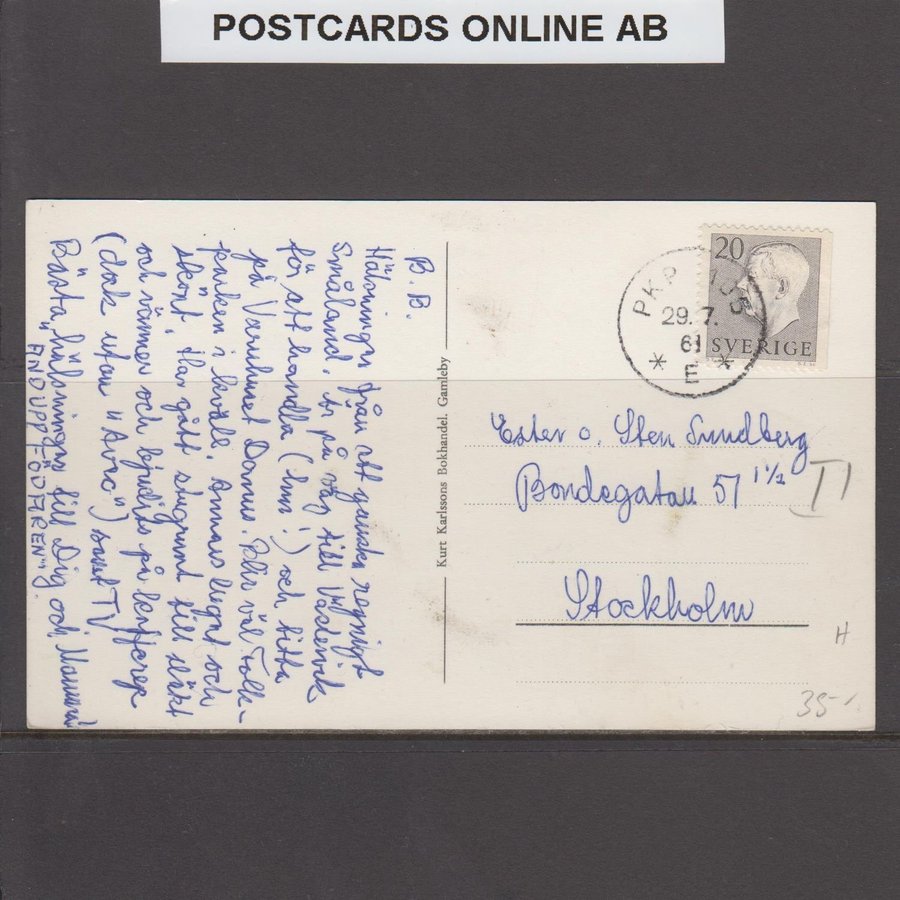 POSTCARDS ONLINE AB
B.B.
Hälsningar från ett ganska regnigt
Småland. Är på väg till Västervik
för att handla (hm!) och titta
på Varuhuset Domus. Blir väl Folk-
parken i kväll. Annars lugnt och
skönt. Har gått slagrumt till släkt
och vänner och bjudits på kafferep
(dock utan "Avec") samt TV
Bästa hälsningar till Dig och Mamma
"FIND UPPFÖDAREN"
Kurt Karlssons Bokhandel. Gamleby
20
SVERIGE
PKP
29.7.
61
E
Ester o. Sten Sundberg
Bondegatan 57 1½
Stockholm
H
35-